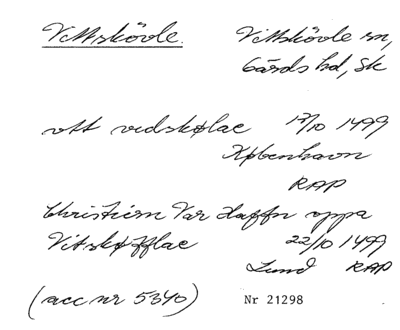 Vittskövle. Vittskövle sn,
Gärds hd, Sk
vtt vedskølae 17/10 1499
København
RAP
Christiern Var Haffn oppa
Vitskøfflae 22/10 1499
Lund RAP
(acc nr 5340) Nr 21298